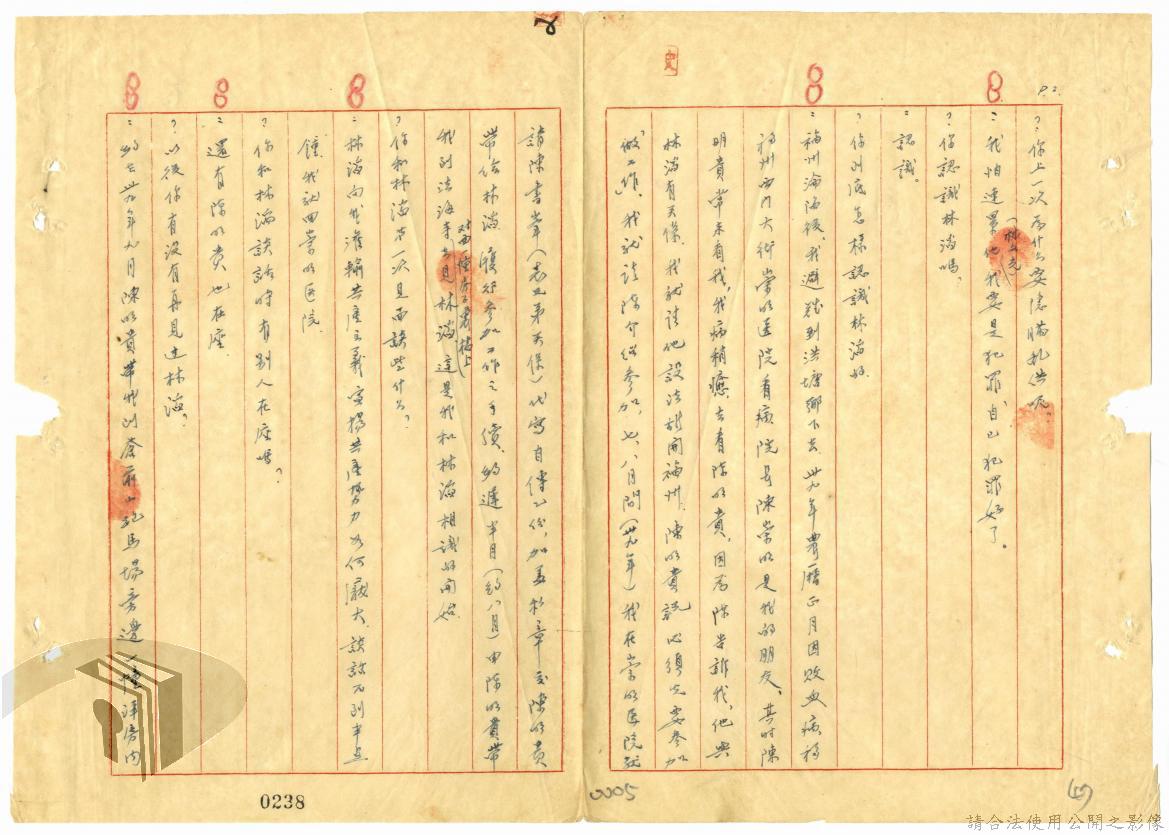 P.2.
?你上一次為什么要隱瞞扯謊呢。
：我怕連累他（林文光）我要是犯罪，自己犯罪好了。
?你認識林海嗎。
：認識。
?你到底怎樣認識林海的
：福州淪陷後，我避難到洪塘鄉下去，卅九年農曆正月因敗血病移
福州西门大街崇明医院看病院長陳崇明是我的朋友，其時陳
明貴常來看我，我病稍癒，去看陳明貴，因為陳告訴我，他與
林海有关係，我就請他設法離開福州，陳明貴說必須先要參加
「做工作」，我就請陳介紹參加，七、八月間（卅九年）我在崇明医院就
請陳書辛（表兄弟关係）代寫自傳乙份，加蓋私章交陳明貴
帶给林海履行參加工作之手續，約遲半月（約八月）由陳明貴帶
我到法海寺对面一幢房子裏樓上会見林海，這是我和林海相識的開始
?你和林海第一次見面談些什么?
：林海向我灌輸共產主義宣揚共產勢力如何龐大，談話不到半点
鐘，我就回崇明医院
?你和林海談話時有别人在座嗎?
：還有陳明貴也在座
?以後你有沒有再見过林海?
：約在卅九年九月陳明貴帶我到倉前山跑馬場旁邊一幢洋房内
0238
0005
請合法使用公開之影像